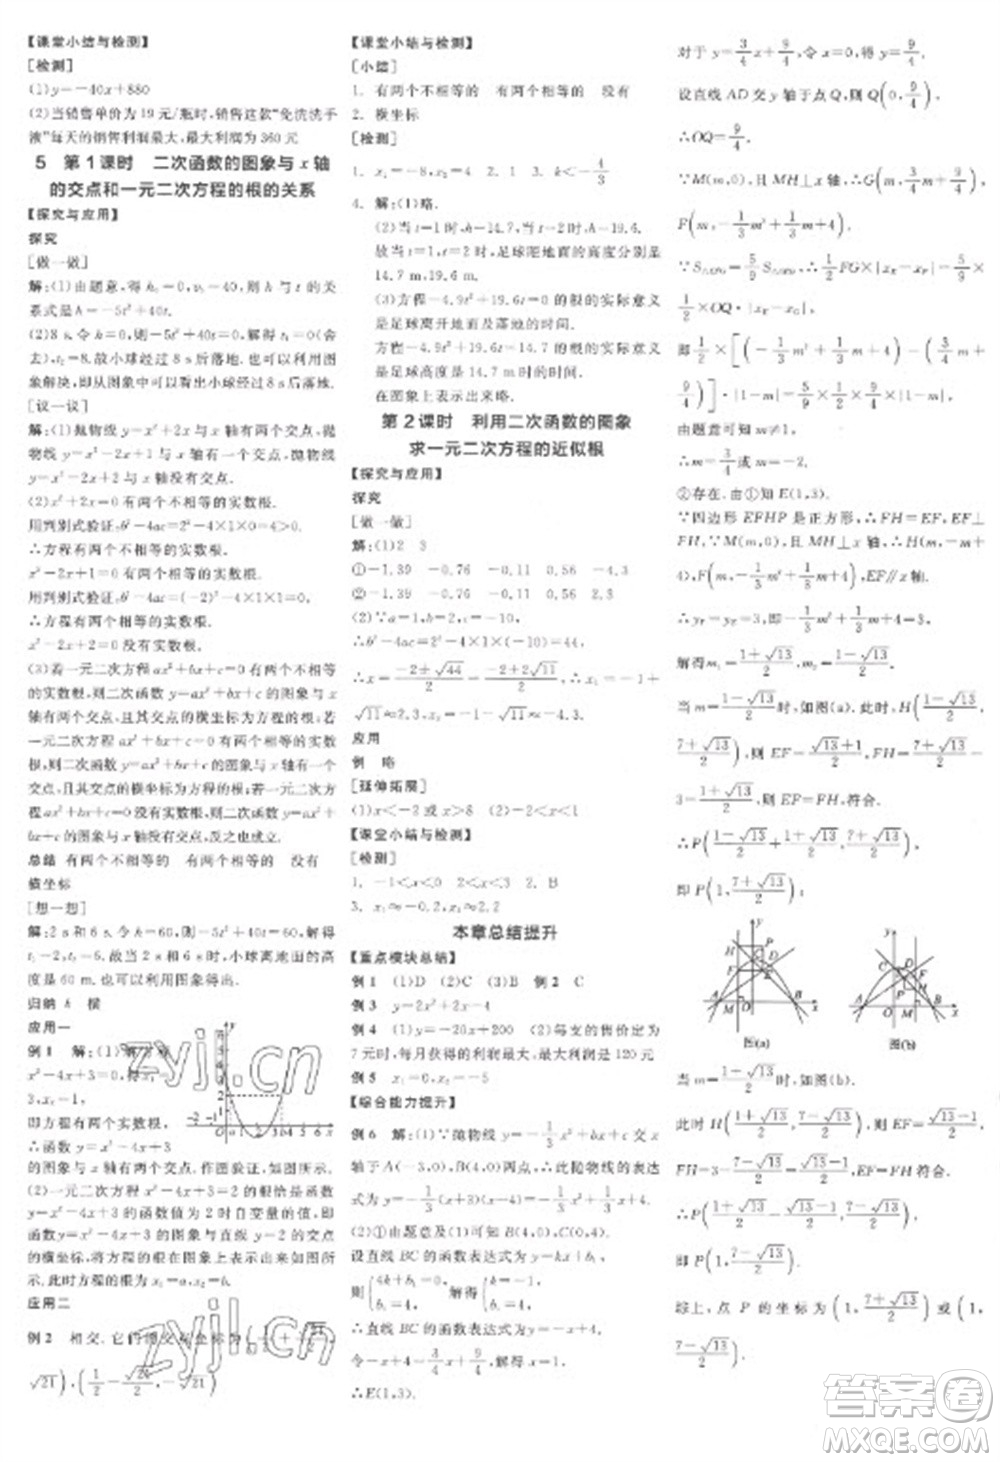 【课堂小结与检测】
[检测]
(1)y=-40x+880
(2)当销售单价为19元/瓶时,销售这款“免洗洗手
液”每天的销售利润最大,最大利润为360元
5 第1课时 二次函数的图象与x轴
的交点和一元二次方程的根的关系
【探究与应用】
探究
[做一做]
解:(1)由题意,得h₀=0,v₀=40,∴h与t的关
系式是h=-5t²+40t.
(2)8 s.令h=0,则-5t²+40t=0,解得t₁=0(舍
去),t₂=8.故小球经过8 s后落地.也可以利用图
象解决,即从图象中可以看出小球8 s后落地.
[议一议]
(2)x²+2x=0有两个不相等的实数根.
用判别式验证,b²-4ac=2²-4×1×0=4>0,
∴方程有两个不相等的实数根.
用判别式验证,b²-4ac=(-2)²-4×1×2=-4<0,
∴方程没有实数根.
x²-2x+2=0没有实数根.
(3)若一元二次方程ax²+bx+c=0有两个不相等
的实数根,则二次函数y=ax²+bx+c的图象与x
轴有两个交点,且其交点的横坐标为方程的根;若
一元二次方程ax²+bx+c=0有两个相等的实数
根,则二次函数y=ax²+bx+c的图象与x轴有一个
交点,且其交点的横坐标为方程的根;若一元二次方
程ax²+bx+c=0没有实数根,则二次函数y=ax²+
bx+c的图象与x轴没有交点,反之也成立.
总结 有两个不相等的 有两个相等的 没有
横坐标
[想一想]
解:2 s和6 s.令h=60,则-5t²+40t=60,解得
t₁=2,t₂=6.故当2 s和6 s时,小球离地面的高
度是60 m.也可以利用图象得出.
归纳 h 横
应用一
例1 解:(1)解方程
x²-4x+3=0,得x₁=
3,x₂=1.
即方程有两个实数根,
∴函数y=x²-4x+3
的图象与x轴有两个交点.图象验证如图所示.
(2)一元二次方程x²-4x+3=2的根恰好是函
数y=x²-4x+3的函数值为2时自变量的值,即
函数y=x²-4x+3的图象与直线y=2的交点
的横坐标,将方程的根在图象上表示出来如图所
示.此时方程的根为x₁=a,x₂=b.
应用二
【课堂小结与检测】
[小结]
1. 有两个不相等的 有两个相等的 没有
2. 横坐标
[检测]
4. 解:(1)略.
(2)当t=1时,h=14.7,当t=2时,h=19.6.
故当t=1和t=2时,足球距地面的高度分别是
14.7 m,19.6 m.
(3)方程-4.9t²+19.6t=0的根的实际意义
是足球离开地面及落地的时间.
方程-4.9t²+19.6t=14.7的根的实际意义
是足球高度是14.7 m时的时间.
在图象上表示出来略.
第2课时 利用二次函数的图象
求一元二次方程的近似根
【探究与应用】
探究
[做一做]
解:(1)2 3
①-1.39 -0.76 -0.11 0.56 -4.3
②-1.39 -0.76 -0.11 0.56
(2)∵a=1,b=2,c=-10,
∴b²-4ac=2²-4×1×(-10)=44,
∴x=(-2±√44)/2=(-2±2√11)/2,∴x₁=-1+
√11≈2.3,x₂=-1-√11≈-4.3.
应用
例 略
[延伸拓展]
(1)x<-2或x>8 (2)-2<x<8
【课堂小结与检测】
[检测]
1. -1<x<3 2. B
3. x₁≈-0.2,x₂≈2.2
本章总结提升
【重点模块总结】
例1 (1)D (2)C (3)B 例2 C
例3 y=2x²+2x-4
例4 (1)y=-20x+200 (2)每支的售价定为
7元时,每周的利润最大,最大利润是120元
例5 x₁=0,x₂=-5
【综合能力提升】
例6 解:(1)∵抛物线y=-1/3x²+bx+c交x
轴于A(-3,0),B(4,0)两点,∴此抛物线的表达
式为y=-1/3(x+3)(x-4)=-1/3x²+1/3x+4.
(2)①由题意及(1)可知B(4,0),C(0,4).
设直线BC的函数表达式为y=kx+b₁,
则{4k+b₁=0, b₁=4, 解得{k=-1, b₁=4,
∴直线BC的函数表达式为y=-x+4.
令-x+4=3/4x+9/4,解得x=1,
∴E(1,3).
对于y=3/4x+9/4,令x=0,得y=9/4.
设直线AD交y轴于点Q,则Q(0,9/4),
∴OQ=9/4.
∵M(m,0),且MH⊥x轴,∴G(m,3/4m+9/4),
F(m,-1/3m²+1/3m+4).
由题意可知m<1,
∴m=3/4或m=-2.
②存在.由①知E(1,3).
∵四边形EFHP是正方形,∴FH=EF,EF⊥
FH,∵M(m,0),且MH⊥x轴,∴H(m,-m+
4),F(m,-1/3m²+1/3m+4),EF∥x轴,
∴y_E=y_F=3,∴3=-1/3m²+1/3m+4,
解得m=(1+√13)/2或m=(1-√13)/2.
当m=(1-√13)/2时,如图(a).此时,H((1-√13)/2,
(7+√13)/2),则EF=(√13+1)/2,FH=(7+√13)/2-
3=(1+√13)/2,则EF=FH,符合.
即P(1,(7+√13)/2);
图(a) 图(b)
当m=(1+√13)/2时,如图(b).
此时H((1+√13)/2,(7-√13)/2),EF=(√13-1)/2,
FH=3-(7-√13)/2=(√13-1)/2,EF=FH符合.
即P(1,(7-√13)/2).
综上,点P的坐标为(1,(7+√13)/2)或(1,
(7-√13)/2).
zyjl.cn
答案圈
MXQE.COM